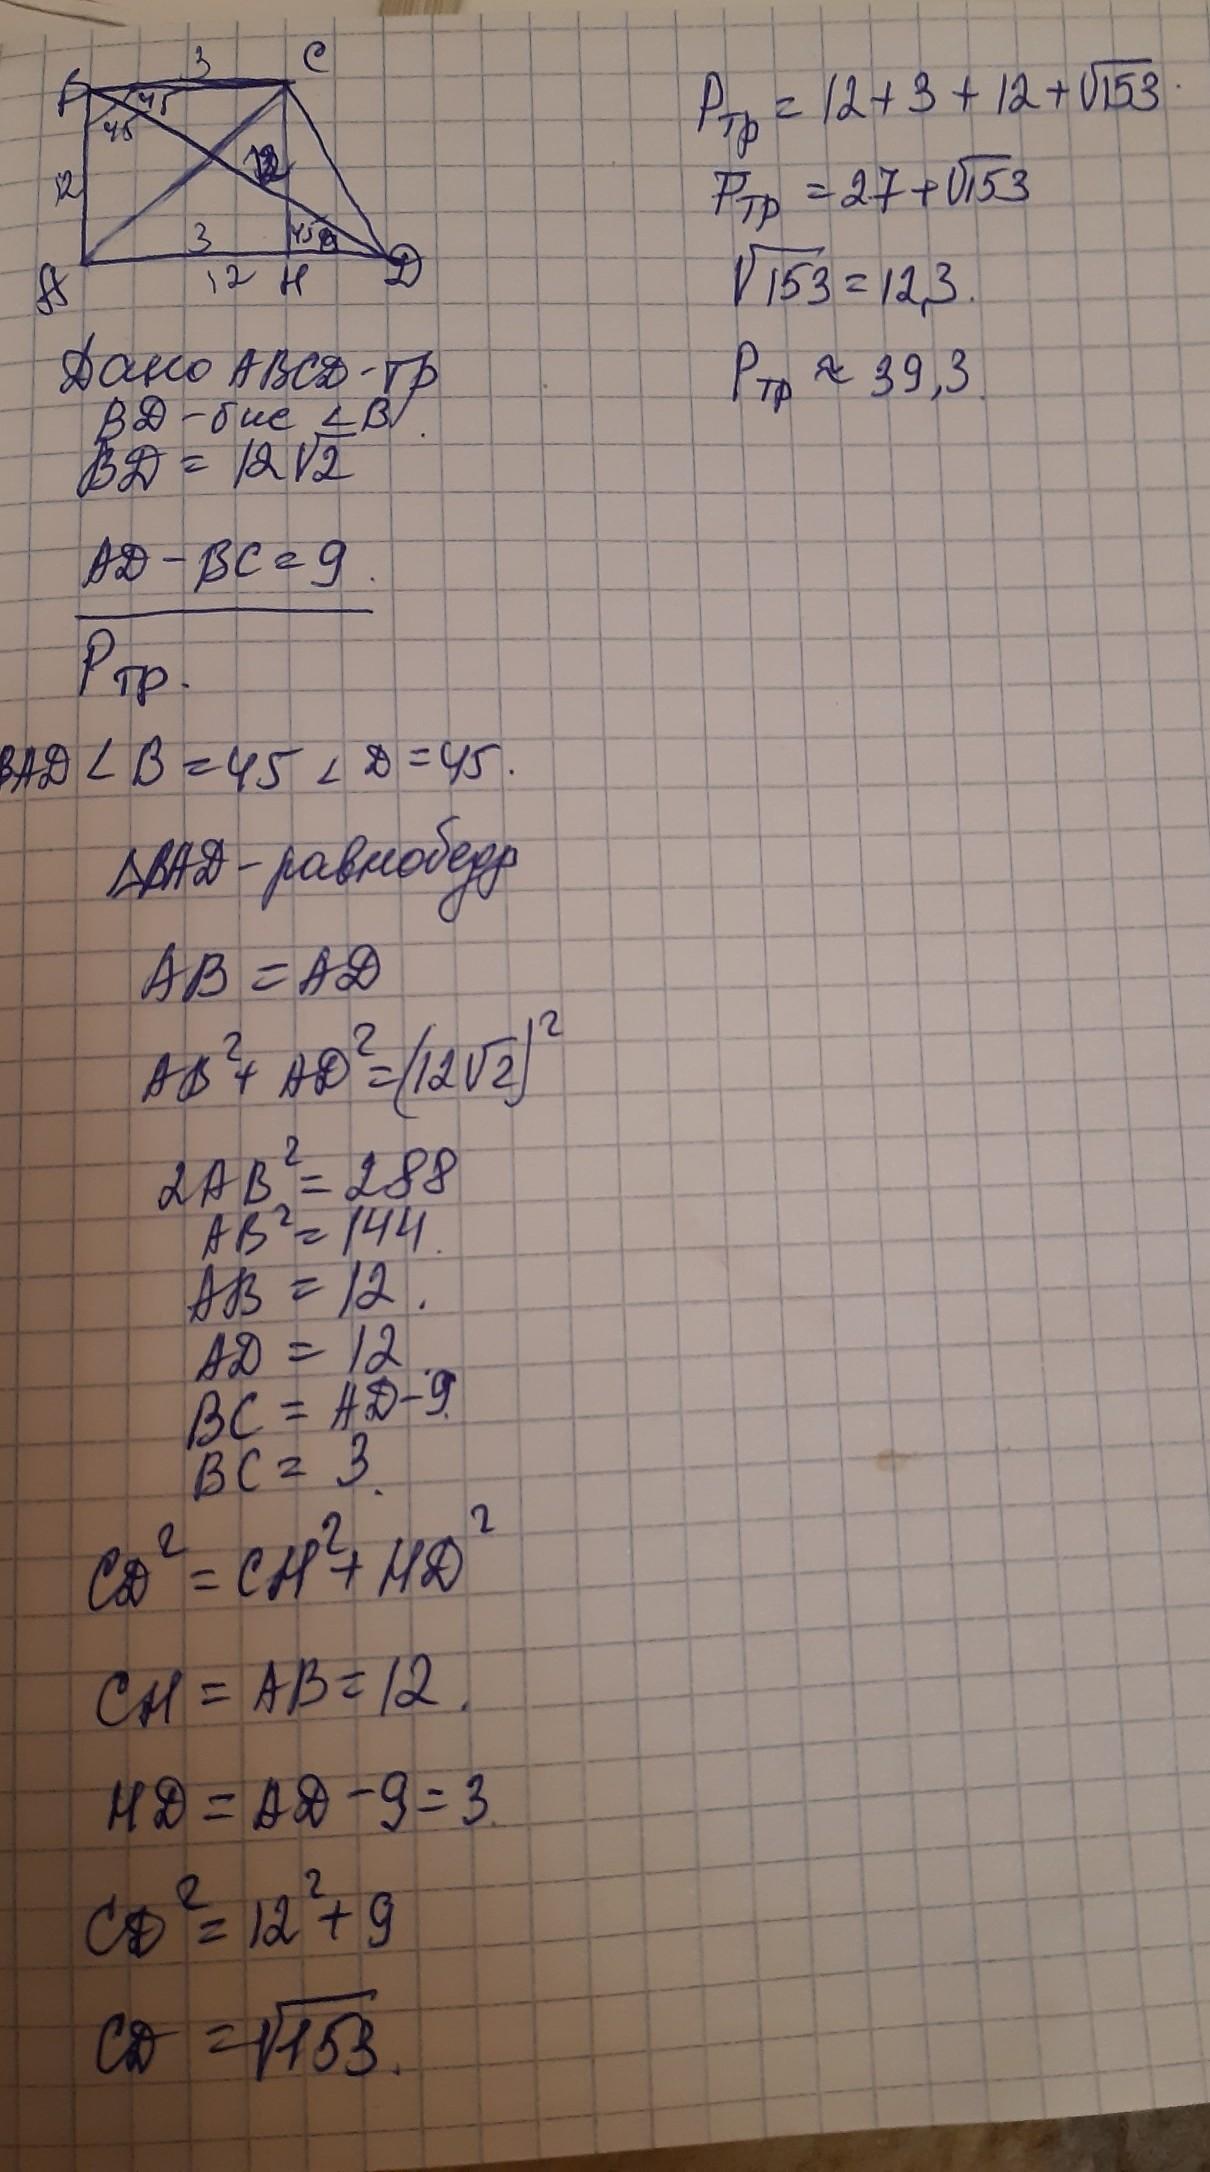 3 C
45
45
12
12
3 45
12 H D
A
Дано ABCD-тр
BD-бис ∠B.
BD = 12√2
AD - BC = 9.
Pтр.
BAD ∠B = 45 ∠D = 45.
△BAD - равнобедр
AB = AD
AB² + AD² = (12√2)²
2AB² = 288
AB² = 144.
AB = 12.
AD = 12.
BC = AD-9.
BC = 3.
CD² = CH² + HD²
CH = AB = 12.
HD = AD - 9 = 3.
CD² = 12² + 9
CD = √153.
Pтр = 12 + 3 + 12 + √153.
Pтр = 27 + √153
√153 = 12,3.
Pтр ≈ 39,3.